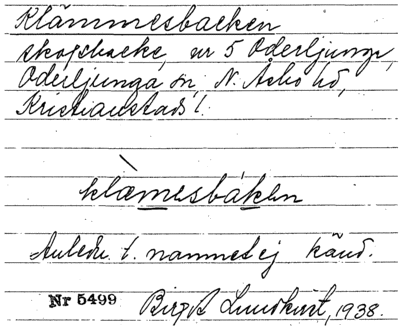 Klämmesbacken
skogsbacke, nr 5 Oderljunga,
Oderljunga sn, N. Åsbo hd,
Kristianstads l.
klæ̀mesbáken
Anledn. t. namnet ej känd.
Nr 5499 Birgit Lundkvist, 1938.